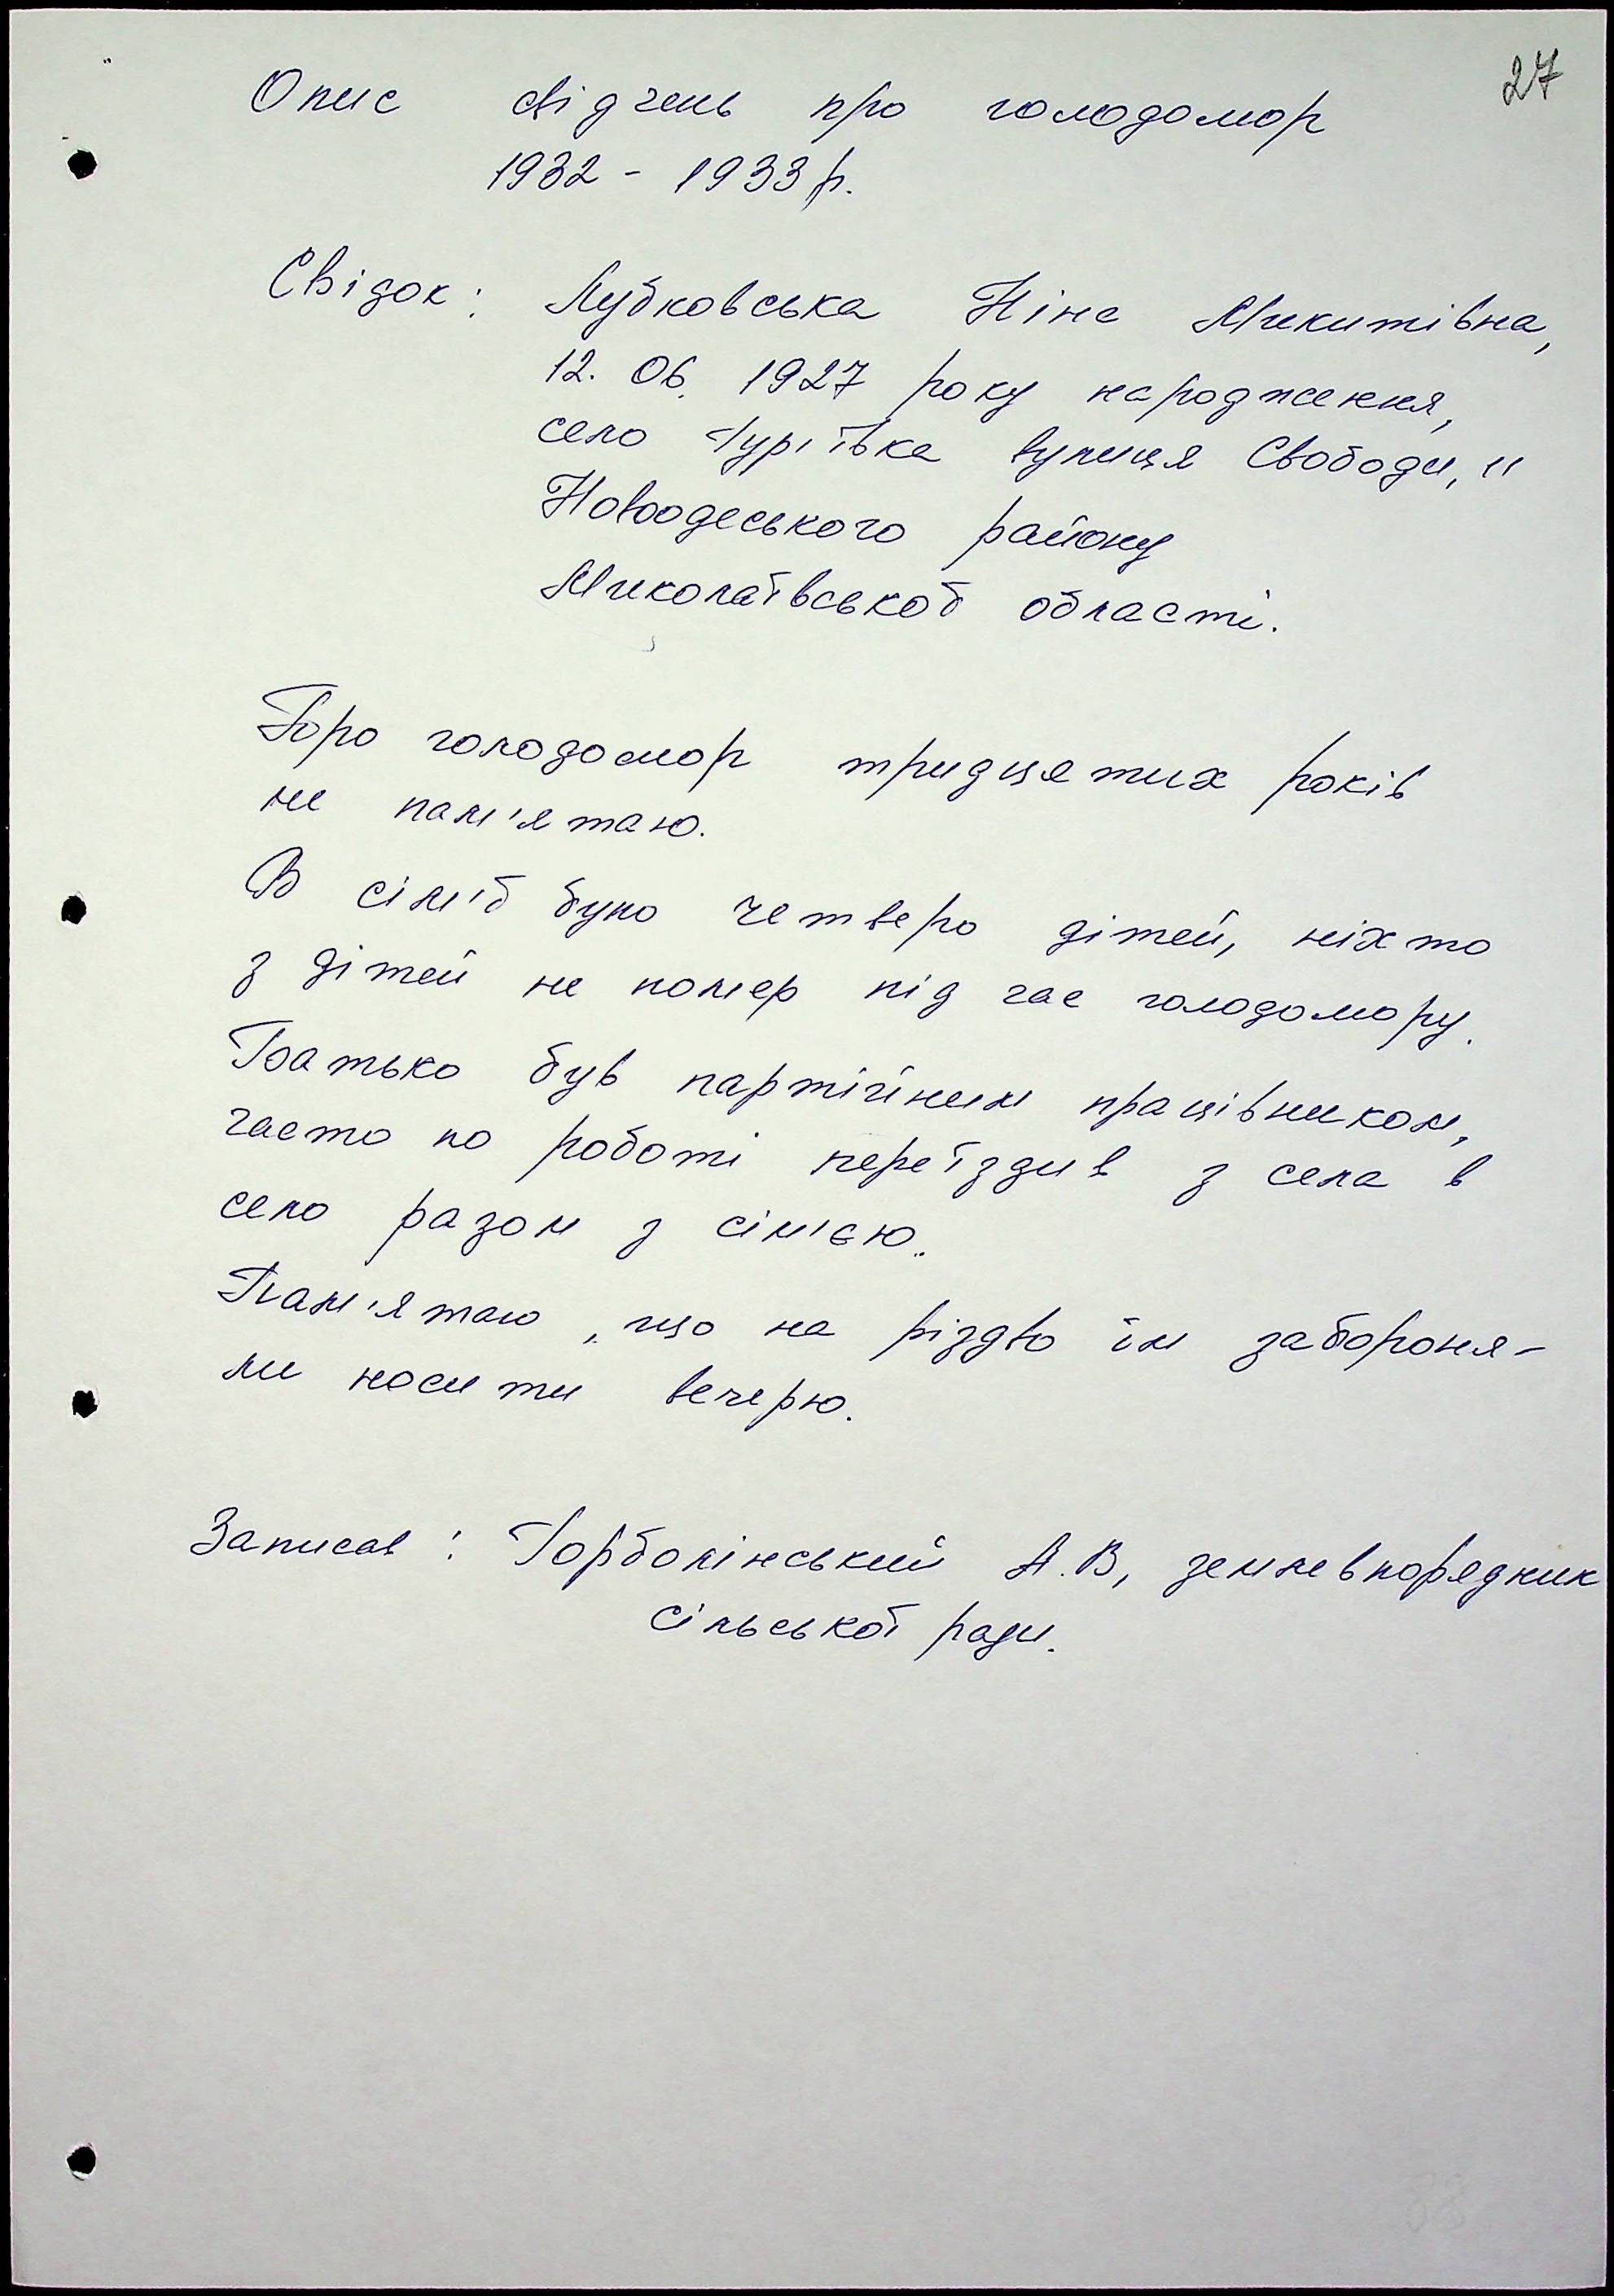 27
Опис свідчень про голодомор
1932 - 1933 р.
Свідок: Лубковська Ніна Микитівна,
12. 06. 1927 року народження,
село Гур'ївка вулиця Свободи, 11
Новоодеського району
Миколаївської області.
Про голодомор тридцятих років
не пам'ятаю.
В сім'ї було четверо дітей, ніхто
з дітей не помер під час голодомору.
Батько був партійним працівником,
часто по роботі переїздив з села в
село разом з сім'єю.
Пам'ятаю, що на різдво їм забороня-
ли носити вечерю.
Записав: Горболінський А.В, землевпорядник
сільської ради.